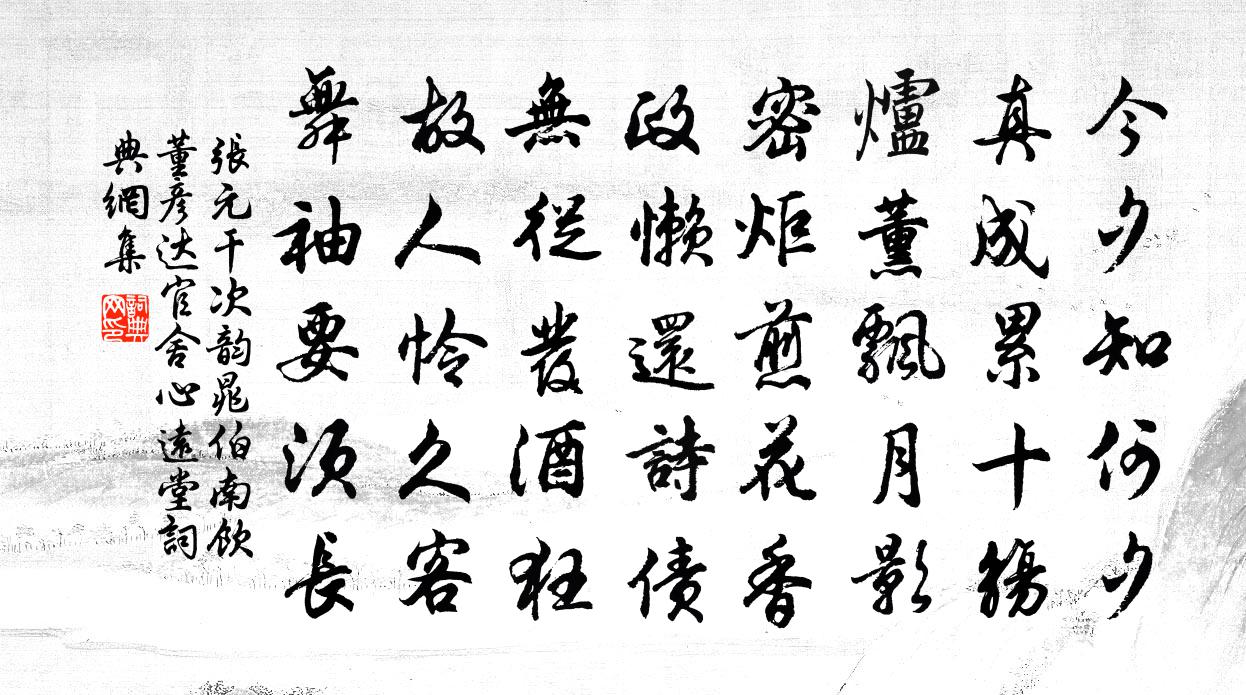 今夕知何夕
真成累十觴
爐薰飄月影
密炬煎花香
政懶還詩債
無從發酒狂
故人怜久客
舞袖要須長
張元干次韵晁伯南飲
董彦达官舍心遠堂詞
典網集
詞典
网印